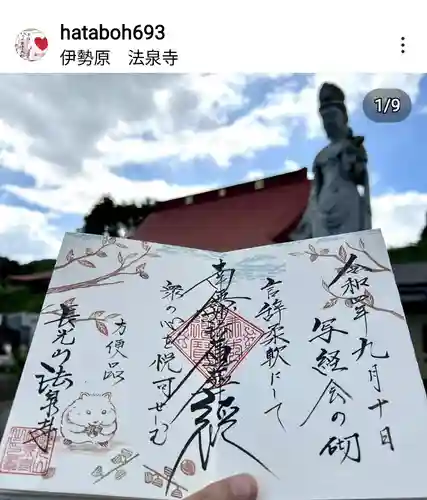 hataboh693
伊勢原 法泉寺
1/9
令和
九月十日
写経会の砌
言辞柔軟にして
南無妙法蓮華経
衆の心を悦可せしむ
方便品
長光山法泉寺